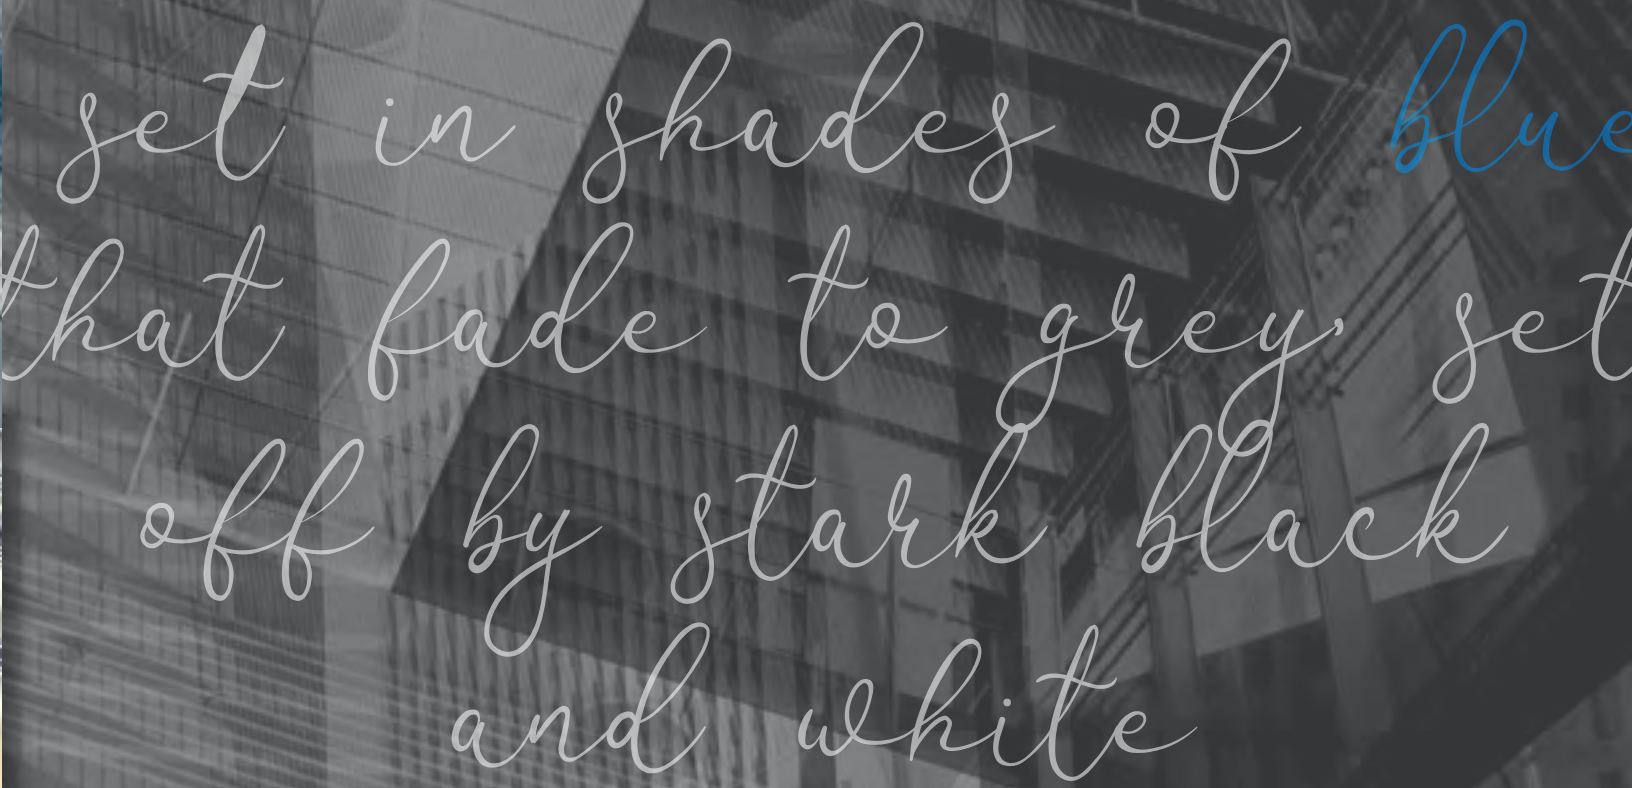 set in shades of blue
that fade to grey, set
off by stark black
and white